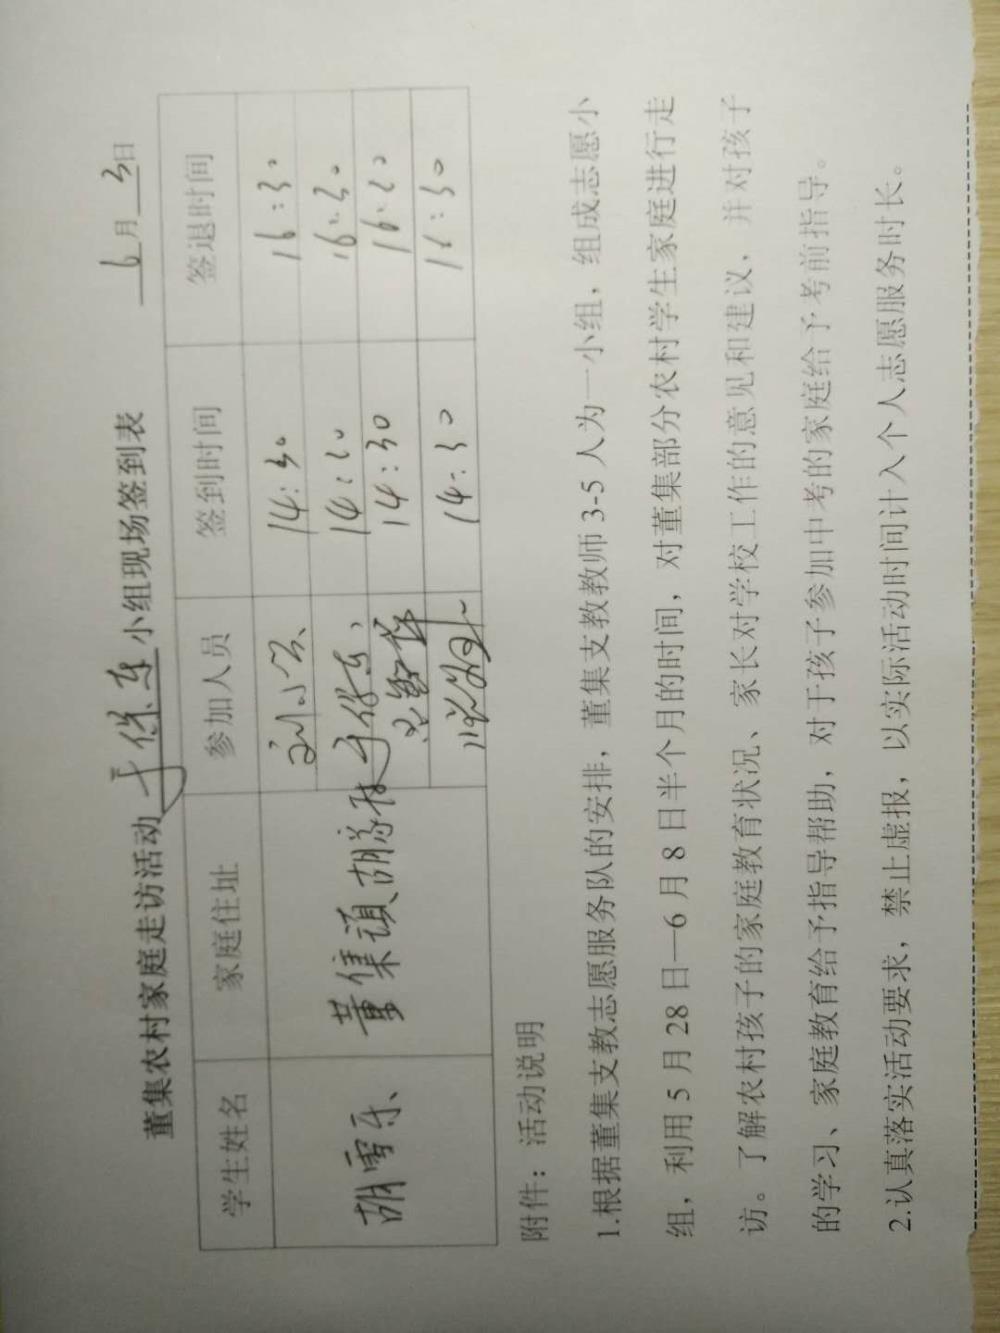 董集农村家庭走访活动 于保东 小组现场签到表 6月3日
学生姓名 家庭住址 参加人员 签到时间 签退时间
胡雪乐 董集镇胡家村 14:30 16:30
于保东 14:30 16:30
14:30 16:30
14:30 16:30
附件：活动说明
1.根据董集支教志愿服务队的安排，董集支教教师3-5人为一小组，组成志愿小
组，利用5月28日—6月8日半个月的时间，对董集部分农村学生家庭进行走
访。了解农村孩子的家庭教育状况、家长对学校工作的意见和建议、并对孩子
的学习、家庭教育给予指导帮助，对于孩子参加中考的家庭给予考前指导。
2.认真落实活动要求，禁止虚报，以实际活动时间计入个人志愿服务时长。